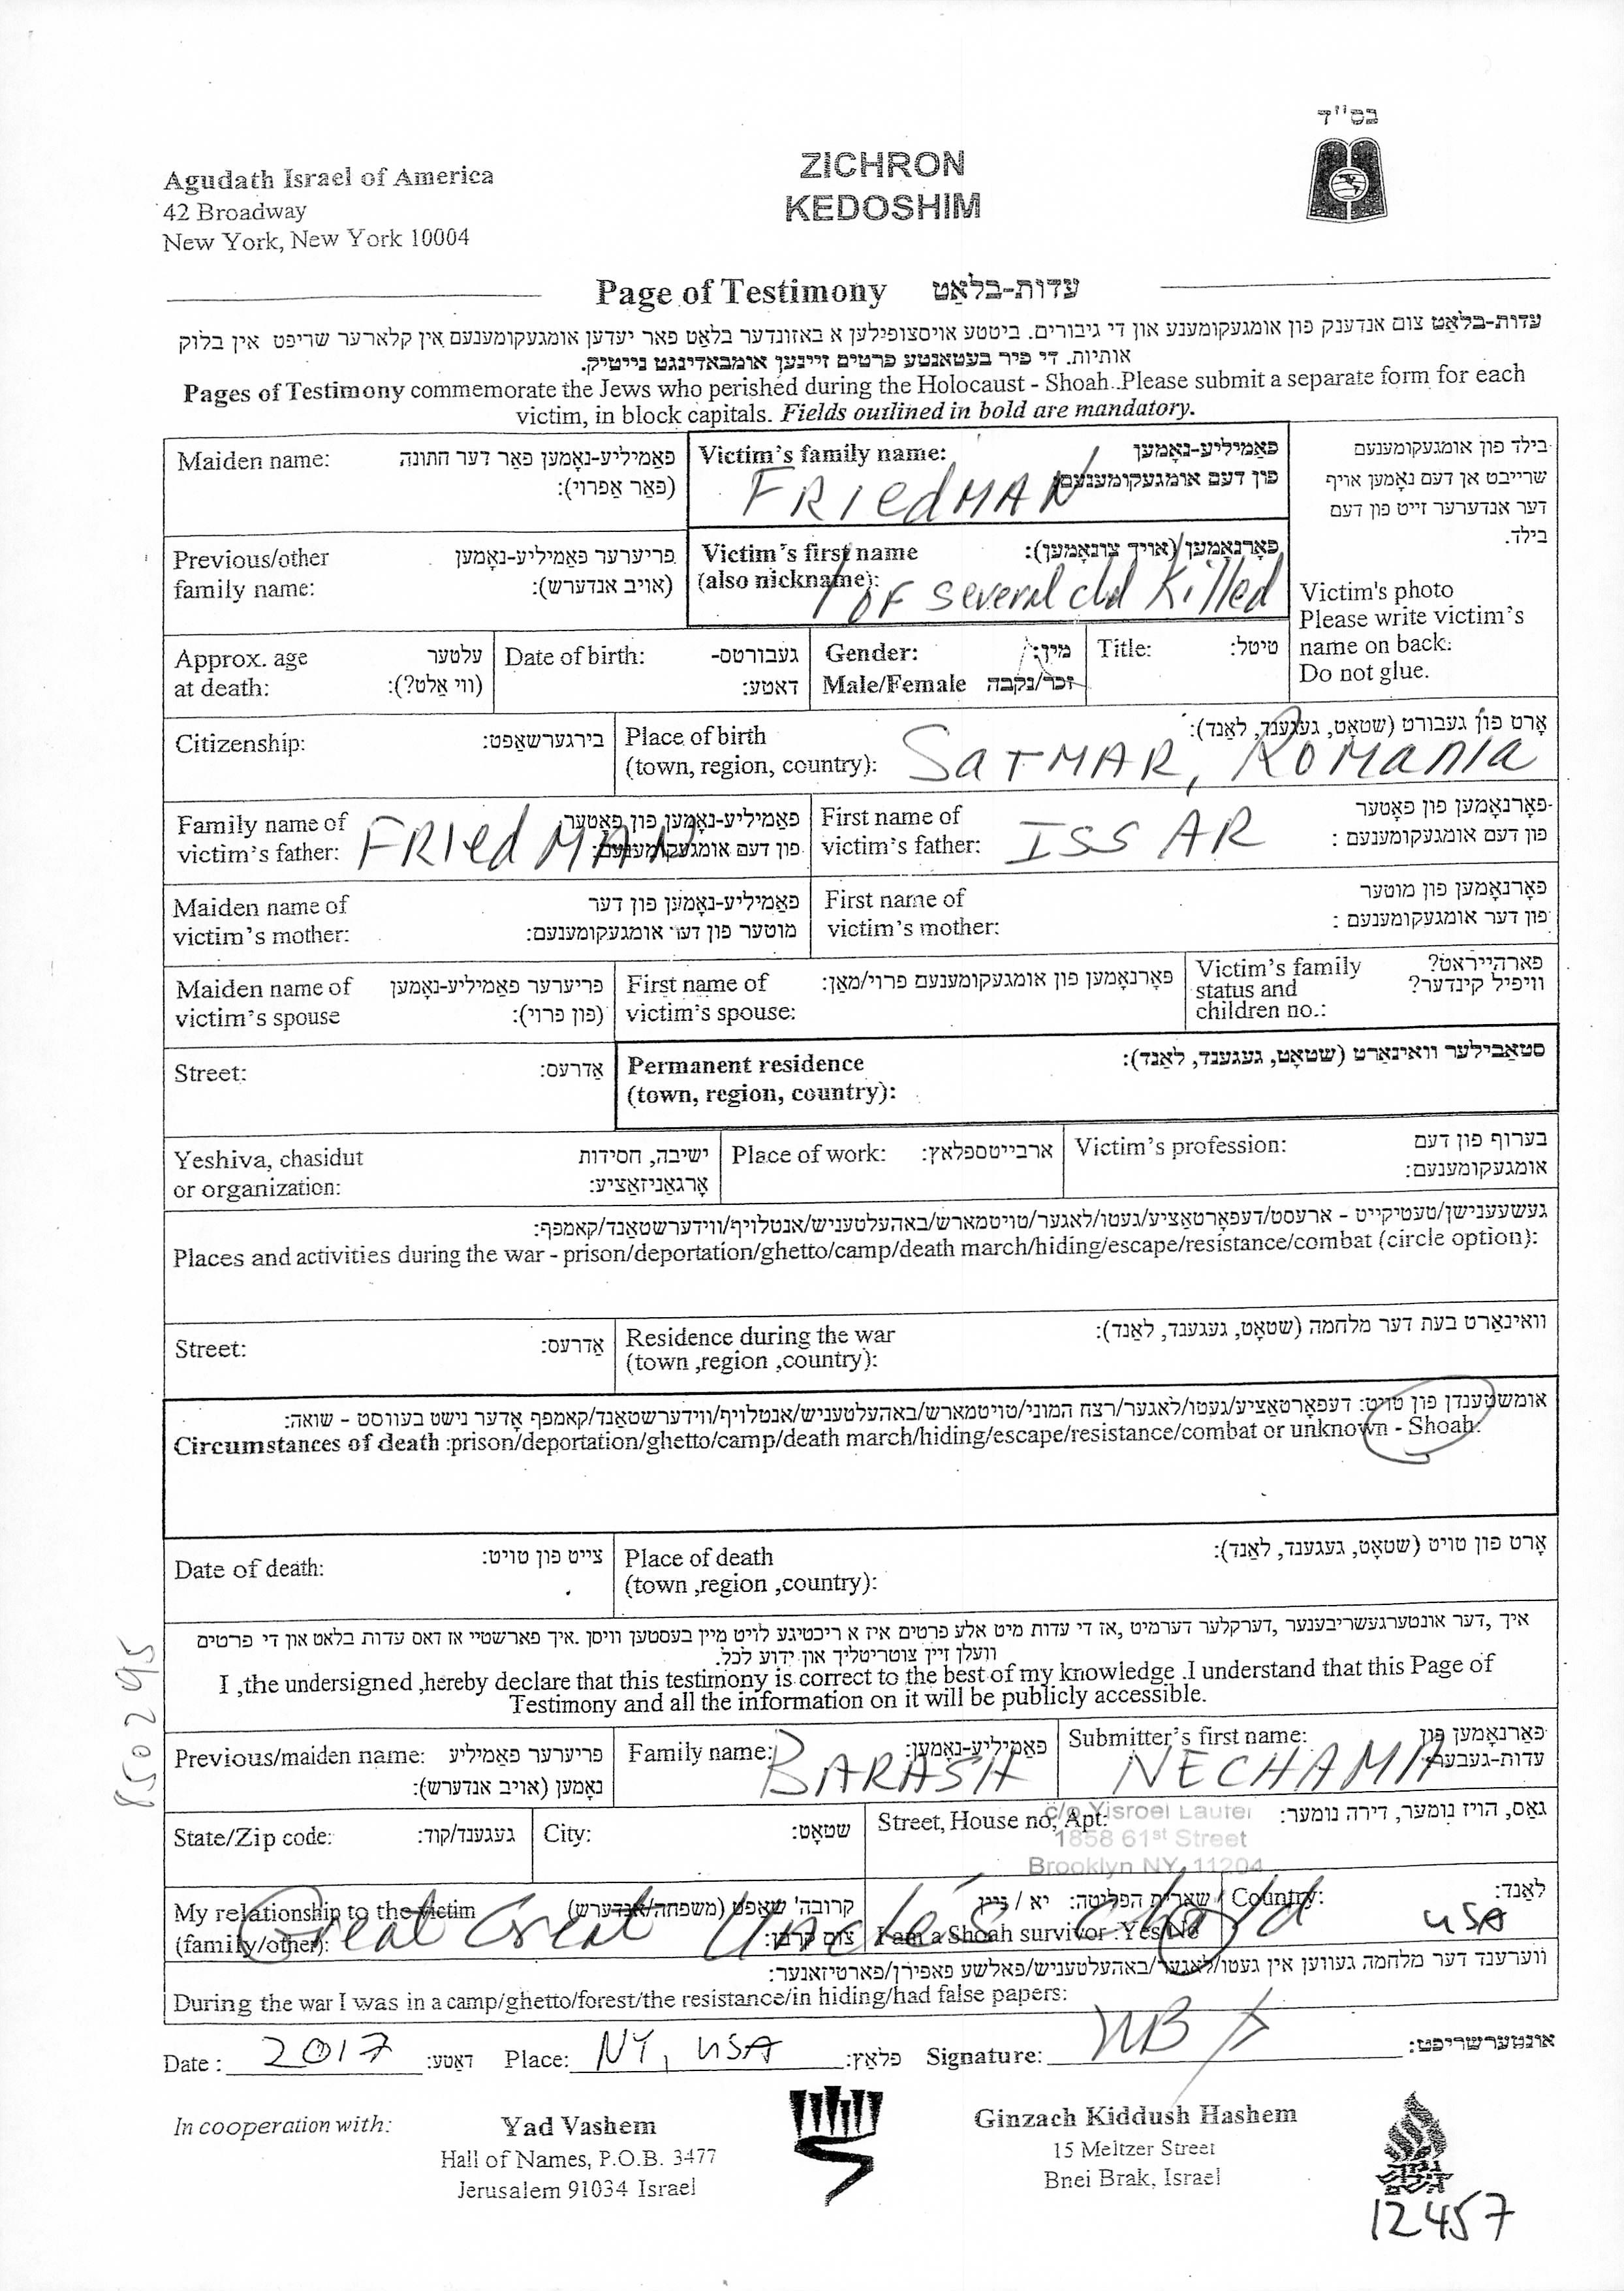 בס"ד
Agudath Israel of America
42 Broadway
New York, New York 10004
ZICHRON
KEDOSHIM
Page of Testimony עדות-בלאַט
עדות-בלאַט צום אנדענק פון אומגעקומענע און די גיבורים. ביטטע אויסצופילען א באזונדער בלאַט פאר יעדען אומגעקומענעם אין קלארער שריפט אין בלוק
אותיות. די פיר בעטאנטע פרטים זיינען אומבאדינגט נייטיק.
Pages of Testimony commemorate the Jews who perished during the Holocaust - Shoah. Please submit a separate form for each
victim, in block capitals. Fields outlined in bold are mandatory.
Maiden name: פאַמיליע-נאָמען פאַר דער חתונה
(פאַר אַפרוי):
Victim's family name: פאַמיליע-נאָמען
פון דעם אומגעקומענעם:
FRIEdMAN
בילד פון אומגעקומענעם
שרייבט אן דעם נאָמען אויף
דער אנדערער זייט פון דעם
בילד.
Victim's photo
Please write victim's
name on back:
Do not glue.
Previous/other פריערער פאַמיליע-נאָמען
family name: (אויב אנדערש):
Victim's first name פאָרנאָמען (אויך צונאָמען):
(also nickname): 1 OF several chd Killed
Approx. age עלטער
at death: (ווי אַלט?):
Date of birth: געבורטס-
דאטע:
Gender: מין:
Male/Female זכר/נקבה
Title: טיטל:
Citizenship: בירגערשאַפט:
Place of birth אָרט פון געבורט (שטאָט, געגענד, לאַנד):
(town, region, country): SATMAR, ROMANIA
Family name of פאַמיליע-נאָמען פון פאָטער
victim's father: FRIEdMAN פון דעם אומגעקומענעם:
First name of פאָרנאָמען פון פאָטער
victim's father: ISSAR פון דעם אומגעקומענעם :
Maiden name of פאַמיליע-נאָמען פון דער
victim's mother: מוטער פון דער אומגעקומענעם:
First name of פאָרנאָמען פון מוטער
victim's mother: פון דער אומגעקומענעם :
Maiden name of פריערער פאַמיליע-נאָמען
victim's spouse (פון פרוי):
First name of פאָרנאָמען פון אומגעקומענעם פרוי/מאַן:
victim's spouse:
Victim's family פארהייראט?
status and וויפיל קינדער?
children no.:
Street: אַדרעס:
Permanent residence סטאַבילער וואוינאָרט (שטאָט, געגענד, לאַנד):
(town, region, country):
Yeshiva, chasidut ישיבה, חסידות
or organization: אָרגאַניזאַציע:
Place of work: ארבייטספלאץ:
Victim's profession: בערוף פון דעם
אומגעקומענעם:
געשעענישן/טעטיקייט - ארעסט/דעפאָרטאַציע/געטו/לאגער/טויטמארש/באהעלטעניש/אנטלויף/ווידערשטאַנד/קאמפף:
Places and activities during the war - prison/deportation/ghetto/camp/death march/hiding/escape/resistance/combat (circle option):
Street: אַדרעס:
Residence during the war וואוינאָרט בעת דער מלחמה (שטאָט, געגענד, לאַנד):
(town ,region ,country):
אומשטענדן פון טויט: דעפאָרטאַציע/געטו/לאגער/רצח המוני/טויטמארש/באהעלטעניש/אנטלויף/ווידערשטאַנד/קאמפף אָדער נישט בעוווסט - שואה:
Circumstances of death :prison/deportation/ghetto/camp/death march/hiding/escape/resistance/combat or unknown - Shoah:
Date of death: צייט פון טויט:
Place of death אָרט פון טויט (שטאָט, געגענד, לאַנד):
(town ,region ,country):
איך ,דער אונטערגעשריבענער ,דערקלער דערמיט ,אז די עדות מיט אלע פרטים איז א ריכטיגע לויט מיין בעסטען וויסן .איך פארשטיי אז דאס עדות בלאט און די פרטים
וועלן זיין צוטריטליך און ידוע לכל.
I ,the undersigned ,hereby declare that this testimony is correct to the best of my knowledge .I understand that this Page of
Testimony and all the information on it will be publicly accessible.
850295
Previous/maiden name: פריערער פאַמיליע
נאָמען (אויב אנדערש):
Family name: פאַמיליע-נאָמען:
BARASH
Submitter's first name: פאָרנאָמען פון
NECHAMA
State/Zip code: געגענד/קוד:
City: שטאָט:
Street, House no, Apt: גאַס, הויז נומער, דירה נומער:
c/o Yisroel Lauter
1858 61st Street
Brooklyn NY, 11204
My relationship to the victim קרובה'שאַפט (משפחה/אנדערש)
(family/other):
Great Great Uncle's child
שארית הפליטה: יא / ניין
I am a Shoah survivor :Yes/No
Country: לאַנד:
USA
ווערענד דער מלחמה געווען אין געטו/לאגער/באהעלטעניש/פאלשע פאפירן/פארטיזאנער:
During the war I was in a camp/ghetto/forest/the resistance/in hiding/had false papers:
Date : 2017 דאַטע: Place: NY, USA פלאַץ: Signature: NB אונטערשריפט:
In cooperation with:
Yad Vashem
Hall of Names, P.O.B. 3477
Jerusalem 91034 Israel
Ginzach Kiddush Hashem
15 Meltzer Street
Bnei Brak, Israel
12457